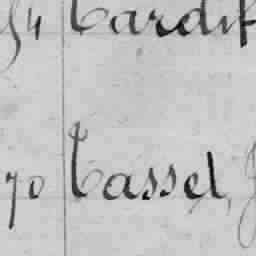 54 Cardif
70 Cassel, J